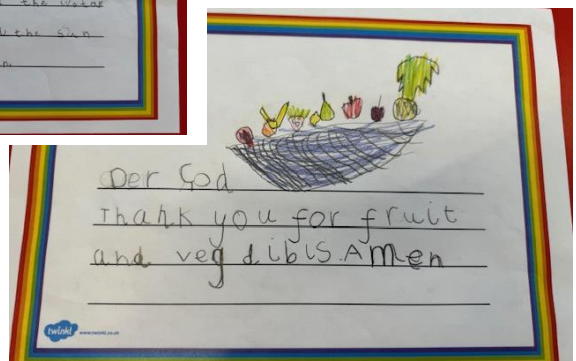 the water
the sun
Der God
Thank you for fruit
and veg dibis. Amen
twinkl
www.twinkl.co.uk